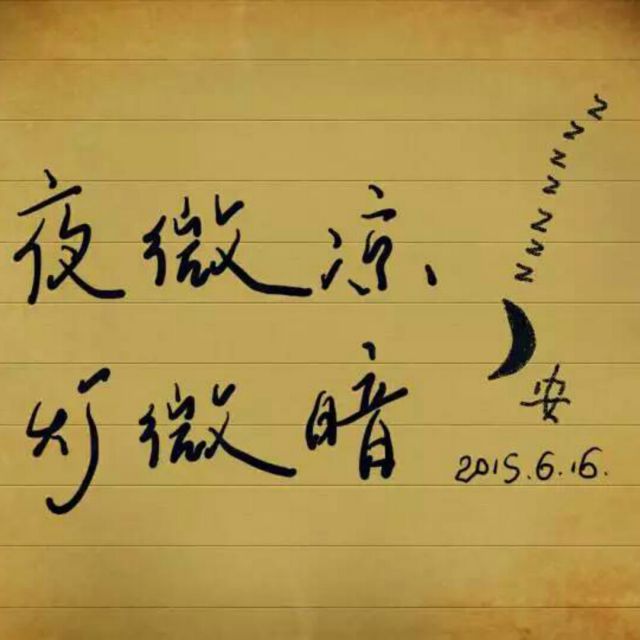 zzzzzzz
夜微凉、
灯微暗
安
2015.6.16.